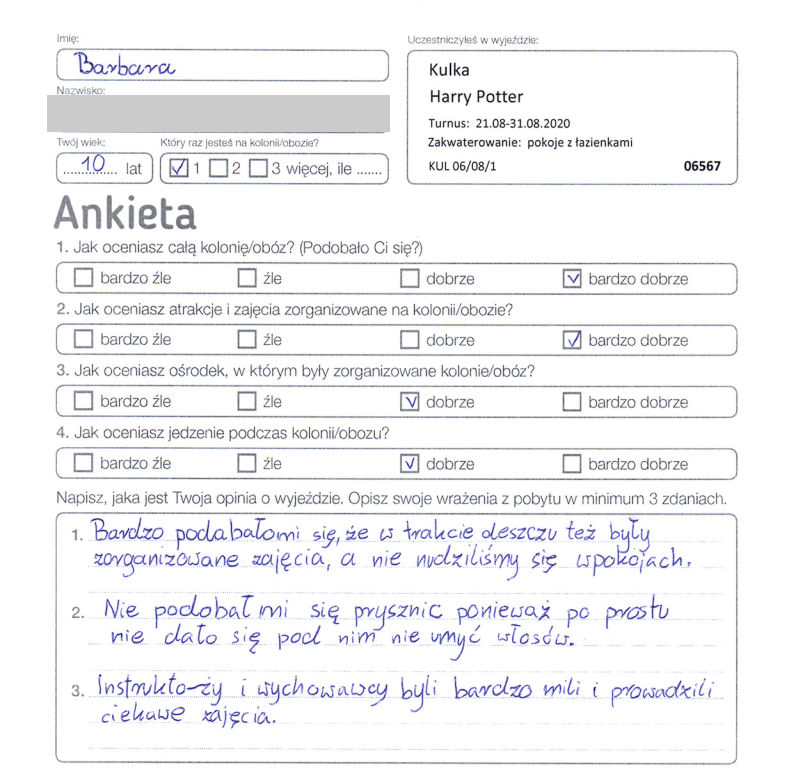 Imię:
Barbara
Nazwisko:
Twój wiek:
10 lat
Który raz jesteś na kolonii/obozie?
1 2 3 więcej, ile .......
Uczestniczyłeś w wyjeździe:
Kulka
Harry Potter
Turnus: 21.08-31.08.2020
Zakwaterowanie: pokoje z łazienkami
KUL 06/08/1 06567
Ankieta
1. Jak oceniasz całą kolonię/obóz? (Podobało Ci się?)
bardzo źle źle dobrze bardzo dobrze
2. Jak oceniasz atrakcje i zajęcia zorganizowane na kolonii/obozie?
bardzo źle źle dobrze bardzo dobrze
3. Jak oceniasz ośrodek, w którym były zorganizowane kolonie/obóz?
bardzo źle źle dobrze bardzo dobrze
4. Jak oceniasz jedzenie podczas kolonii/obozu?
bardzo źle źle dobrze bardzo dobrze
Napisz, jaka jest Twoja opinia o wyjeździe. Opisz swoje wrażenia z pobytu w minimum 3 zdaniach.
1. Bardzo podabałomi się, że w trakcie deszczu też były
zorganizowane zajęcia, a nie nudziliśmy się wpokojach.
2. Nie podobał mi się prysznic ponieważ po prostu
nie dało się pod nim nie umyć włosów.
3. Instrukto-ży i wychowawcy byli bardzo mili i prowadzili
ciekawe zajęcia.